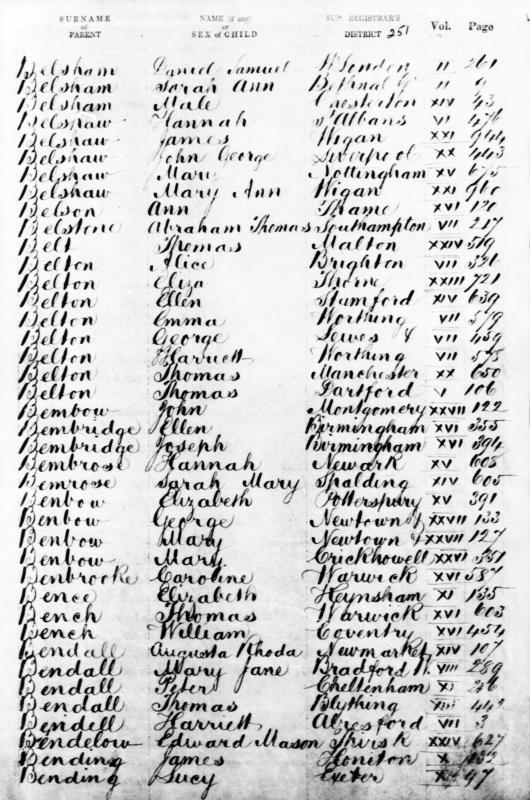 SURNAME of PARENT NAME (if any) or SEX of CHILD SUP. REGISTRAR'S DISTRICT 251 Vol. Page
Belsham Daniel Samuel W London II 261
Belsham Sarah Ann Bethnal Gn II 9
Belsham Male Chesterton XIV 43
Belshaw Hannah St Albans VI 476
Belshaw James Wigan XXI 944
Belshaw John George Liverpool XX 443
Belshaw Mary Nottingham XV 675
Belshaw Mary Ann Wigan XXI 960
Belson Ann Thame XVI 120
Belstone Abraham Thomas Southampton VII 217
Belt Thomas Malton XXIV 519
Belton Alice Brighton VII 326
Belton Eliza Thorne XXIII 721
Belton Ellen Stamford XIV 639
Belton Emma Worthing VII 579
Belton George Lewes & VII 459
Belton Harriett Worthing VII 578
Belton Thomas Manchester XX 650
Belton Thomas Dartford V 106
Bembow John Montgomery XXVII 122
Bembridge Ellen Birmingham XVI 355
Bembridge Joseph Birmingham XVI 394
Bembrose Hannah Newark XV 605
Bemrose Sarah Mary Spalding XIV 605
Benbow Elizabeth Potterspury XV 391
Benbow George Newtown & XXVII 133
Benbow Mary Newtown & XXVII 127
Benbow Mary Crickhowell XXVI 551
Benbrooke Caroline Warwick XVI 587
Bence Elizabeth Keynsham XI 135
Bench Thomas Warwick XVI 603
Bench William Coventry XVI 454
Bendall Augusta Rhoda Newmarket XIV 107
Bendall Mary Jane Bradford W. VIII 289
Bendall Peter Cheltenham XI 256
Bendall Thomas Blything XIII 442
Bendell Harriett Alresford VII 3
Bendelow Edward Mason Thirsk XXIV 627
Bending James Honiton X 133
Bending Lucy Exeter X 97